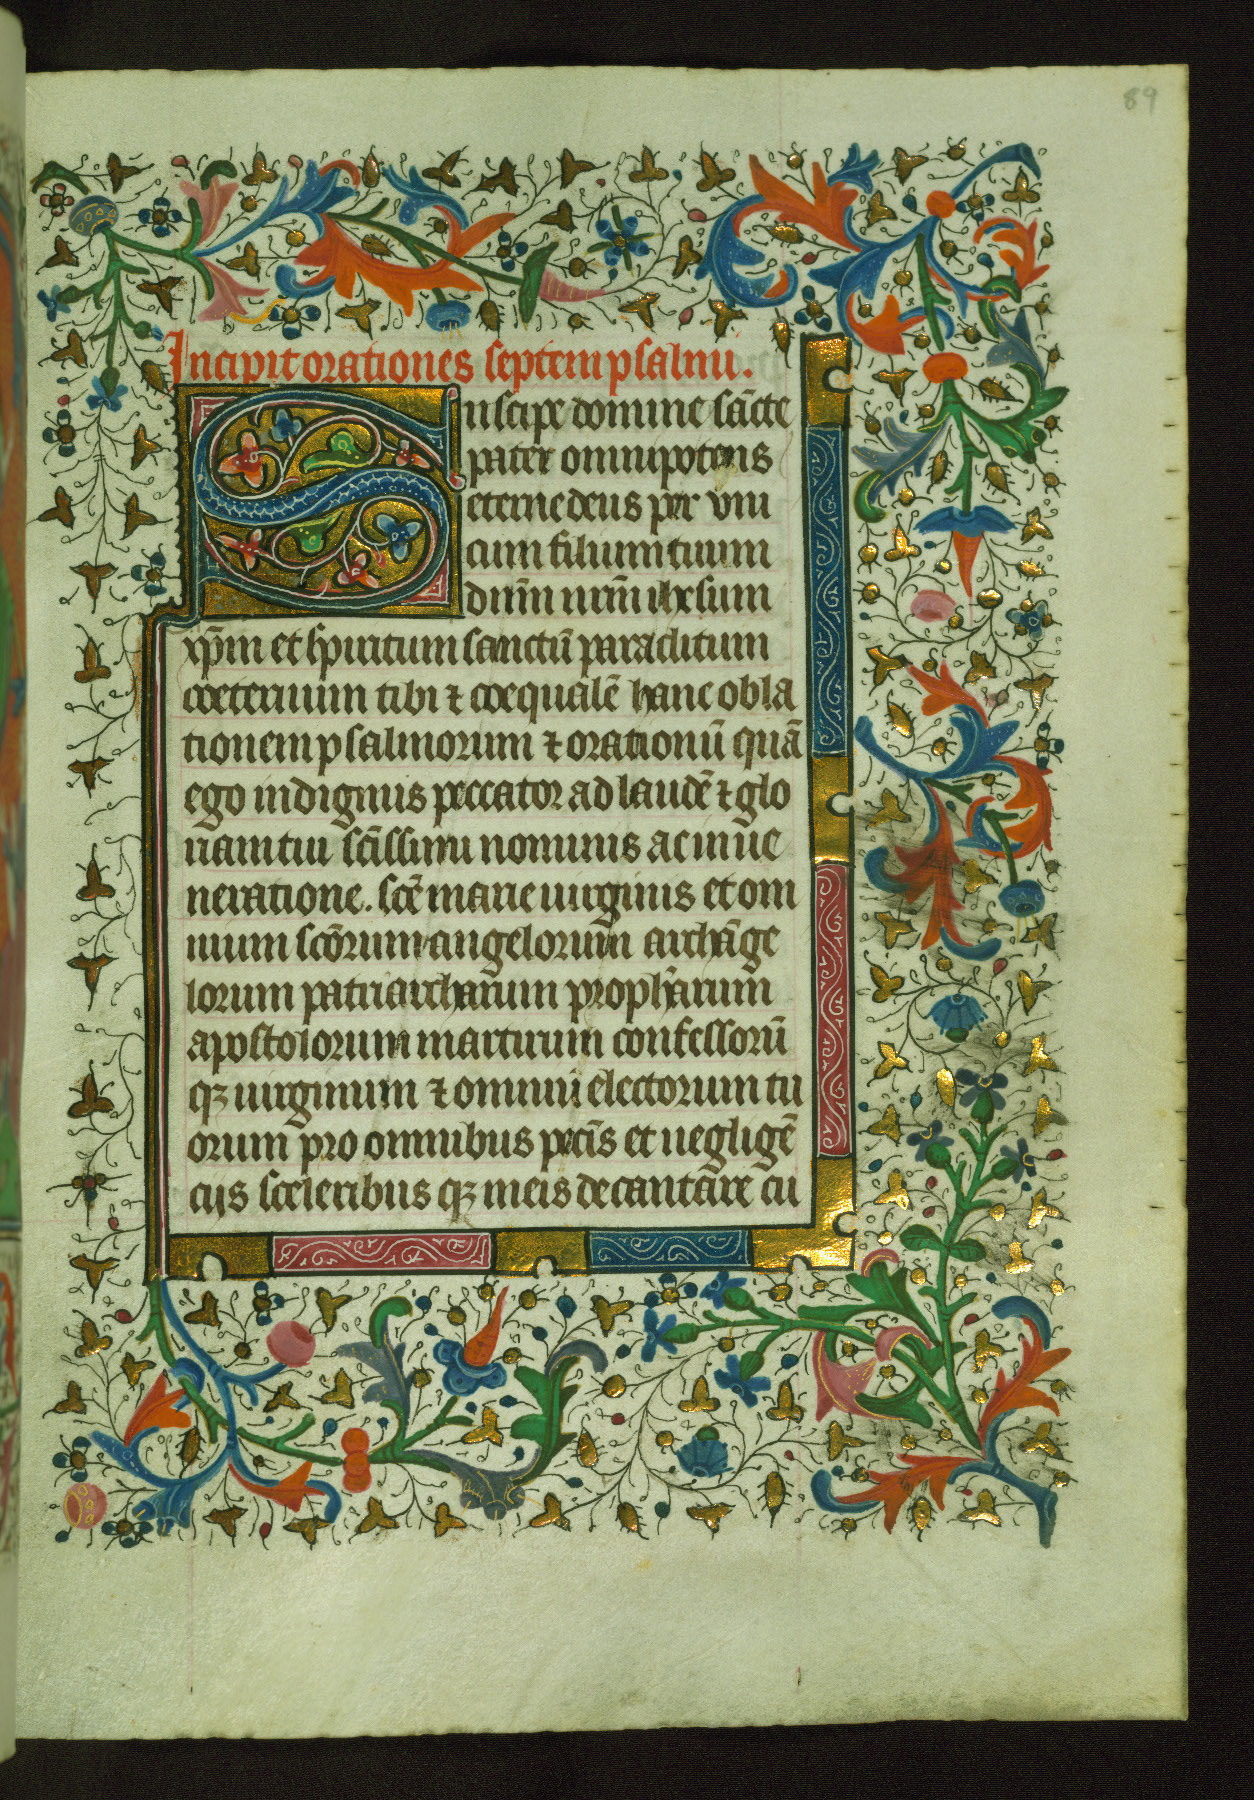 89
Incipit orationes septem psalmi.
Suscipe domine sc̄āte
pater omnipotens
eterne deus per vni
cum filium tuum
dnm̄ nrm̄ ihesum
xp̄m et spiritum sanctū paraclitum
coeternum tibi ⁊ coequalē hanc obla
tionem psalmorum ⁊ orationū quā
ego indignus peccator ad laudē ⁊ glo
riam tui sc̄issimi nominis ac in ue
neratione. sc̄e marie uirginis et om
nium sc̄orum angelorum archāge
lorum patriarcharum prophārum
apostolorum martirum confessorū
qꝫ uirginum ⁊ omniū electorum tu
orum pro omnibus pctīs et negligē
cijs sceleribus qꝫ meis decantare cu